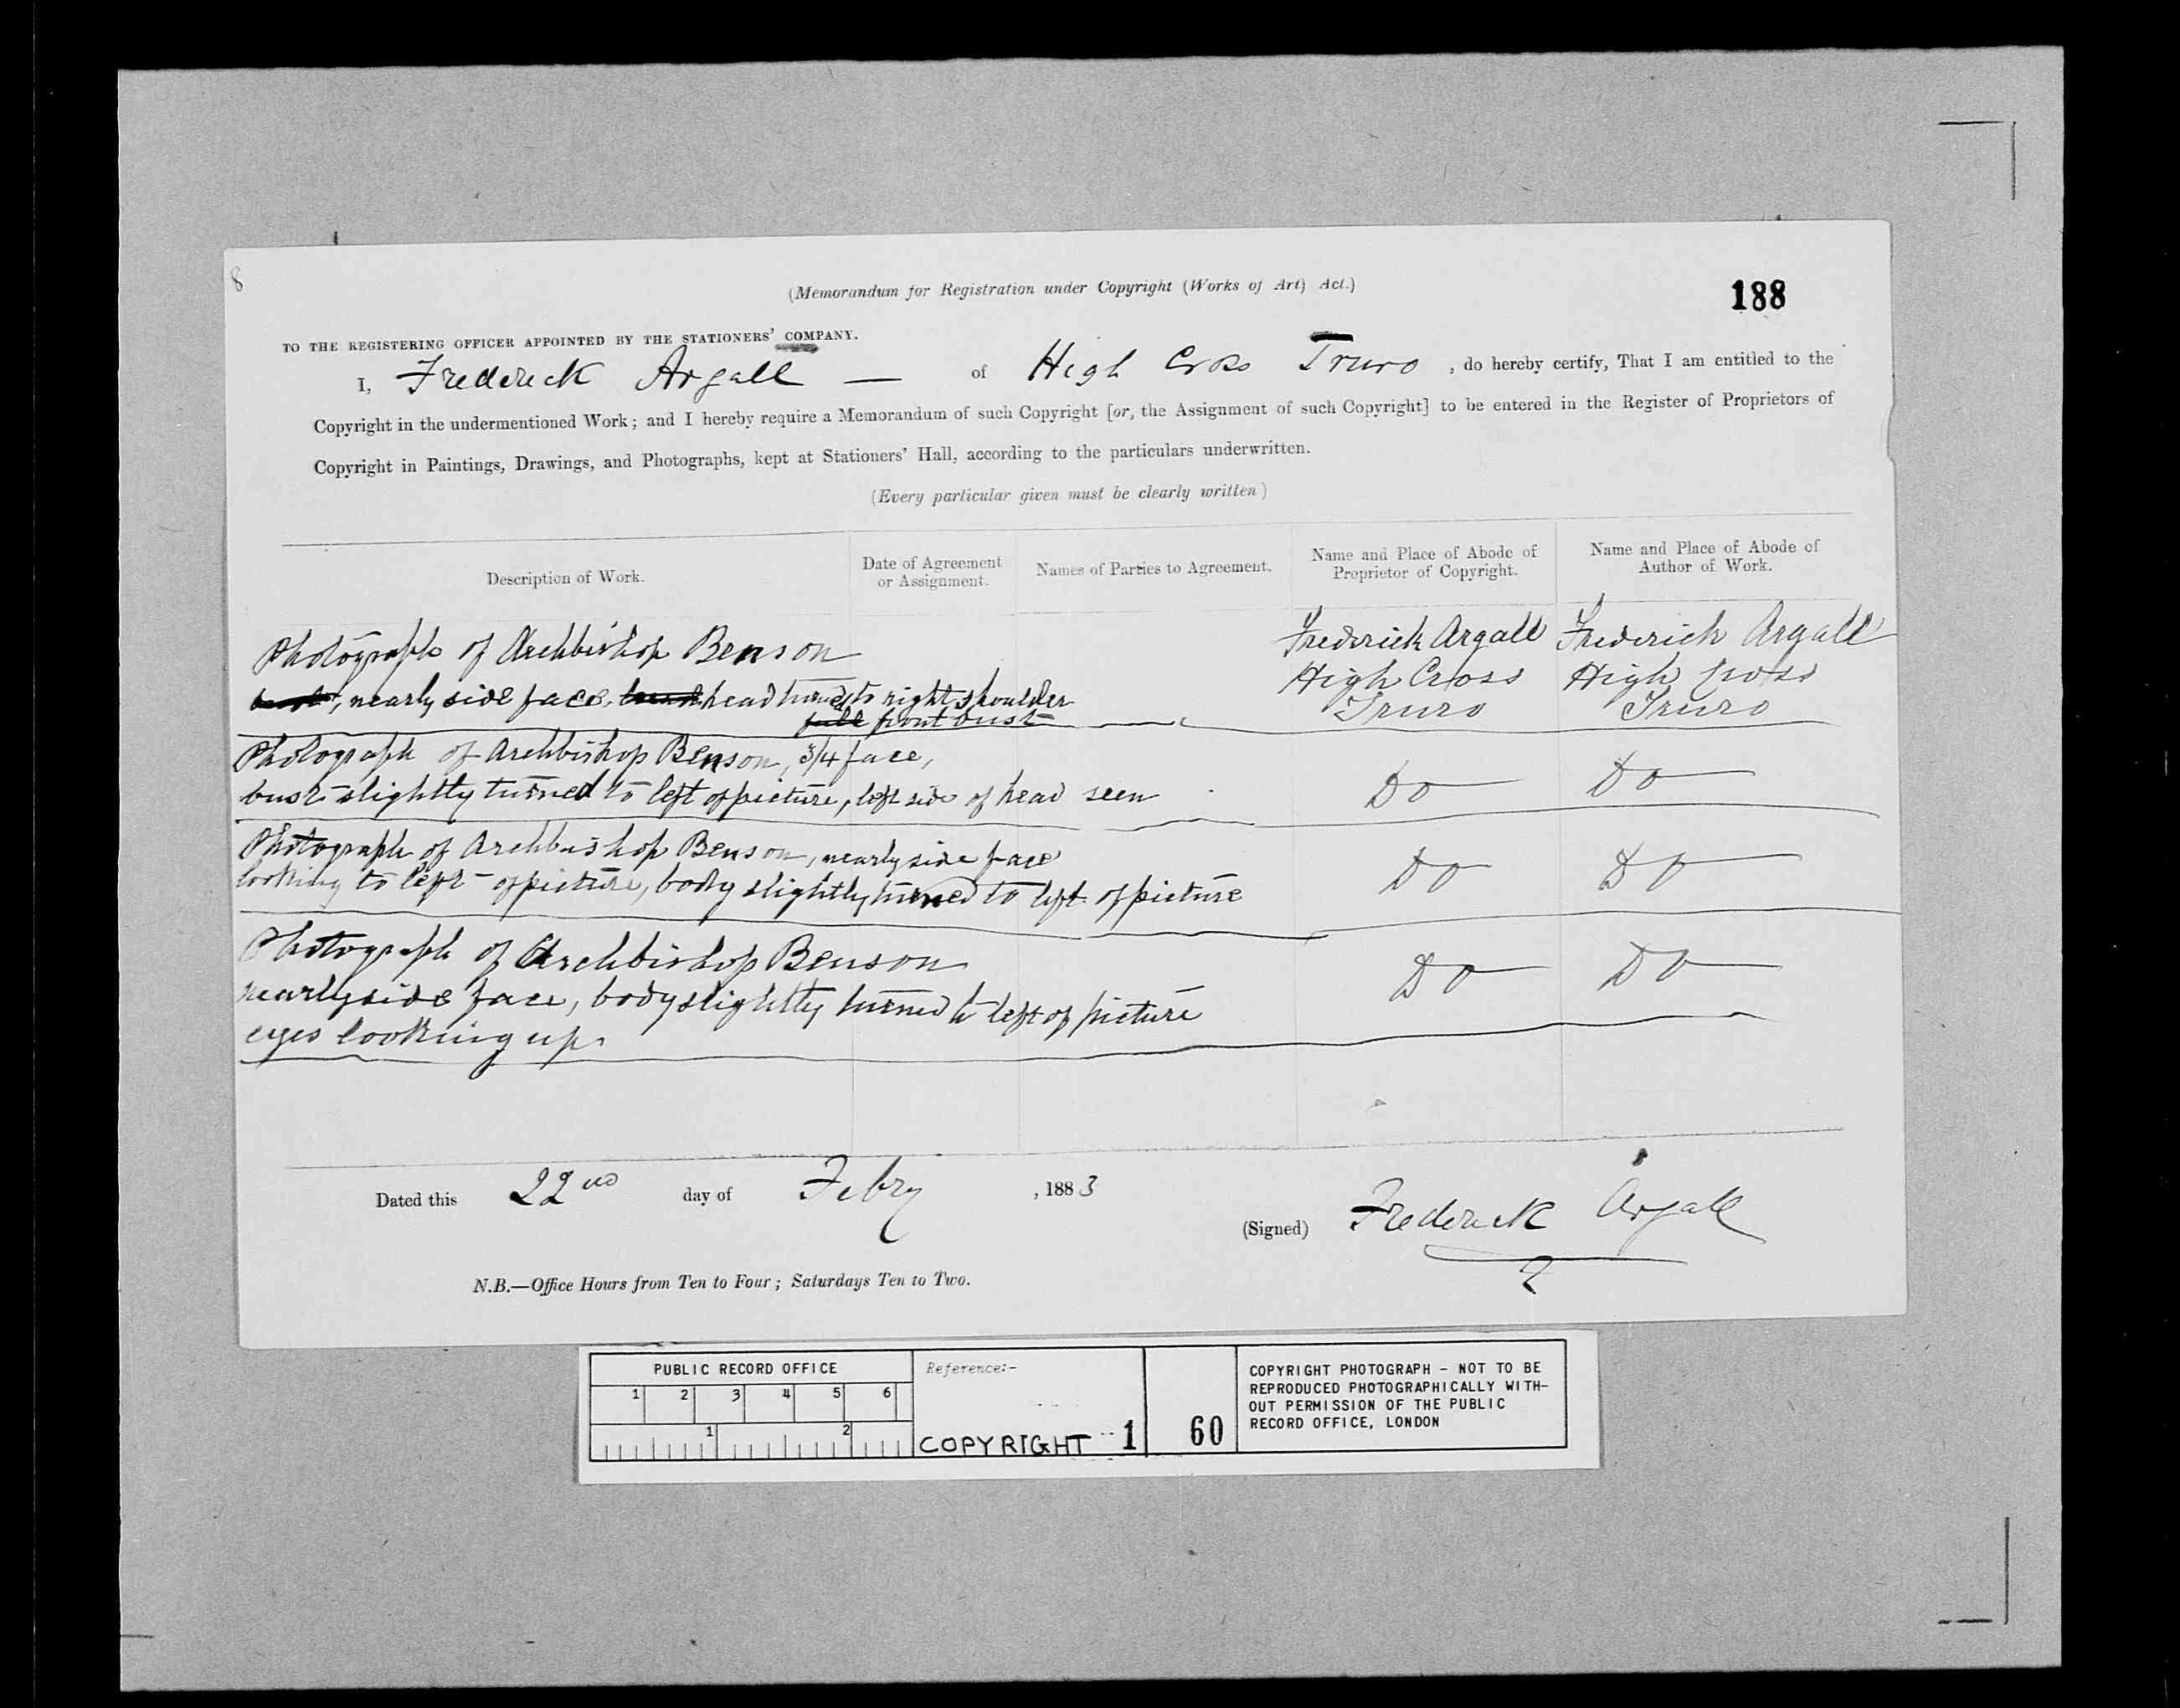 8
(Memorandum for Registration under Copyright (Works of Art) Act.)
188
TO THE REGISTERING OFFICER APPOINTED BY THE STATIONERS' COMPANY.
I, Frederick Argall — of High Cross Truro , do hereby certify, That I am entitled to the
Copyright in the undermentioned Work; and I hereby require a Memorandum of such Copyright [or, the Assignment of such Copyright] to be entered in the Register of Proprietors of
Copyright in Paintings, Drawings, and Photographs, kept at Stationers' Hall, according to the particulars underwritten.
(Every particular given must be clearly written)
Description of Work.
Date of Agreement
or Assignment.
Names of Parties to Agreement.
Name and Place of Abode of
Proprietor of Copyright.
Name and Place of Abode of
Author of Work.
Photograph of Archbishop Benson
nearly side face, head turned to right shoulder
full front bust
Frederick Argall
High Cross
Truro
Frederick Argall
High Cross
Truro
Photograph of Archbishop Benson, 3/4 face,
bust slightly turned to left of picture, left side of head seen
Do
Do
Photograph of Archbishop Benson, nearly side face
looking to left of picture, body slightly turned to left of picture
Do
Do
Photograph of Archbishop Benson
nearly side face, body slightly turned to left of picture
eyes looking up.
Do
Do
Dated this 22nd day of Febry , 1883
(Signed) Frederick Argall
N.B.—Office Hours from Ten to Four; Saturdays Ten to Two.
PUBLIC RECORD OFFICE
1 2 3 4 5 6
1 2
Reference:-
COPYRIGHT 1
60
COPYRIGHT PHOTOGRAPH - NOT TO BE
REPRODUCED PHOTOGRAPHICALLY WITH-
OUT PERMISSION OF THE PUBLIC
RECORD OFFICE, LONDON